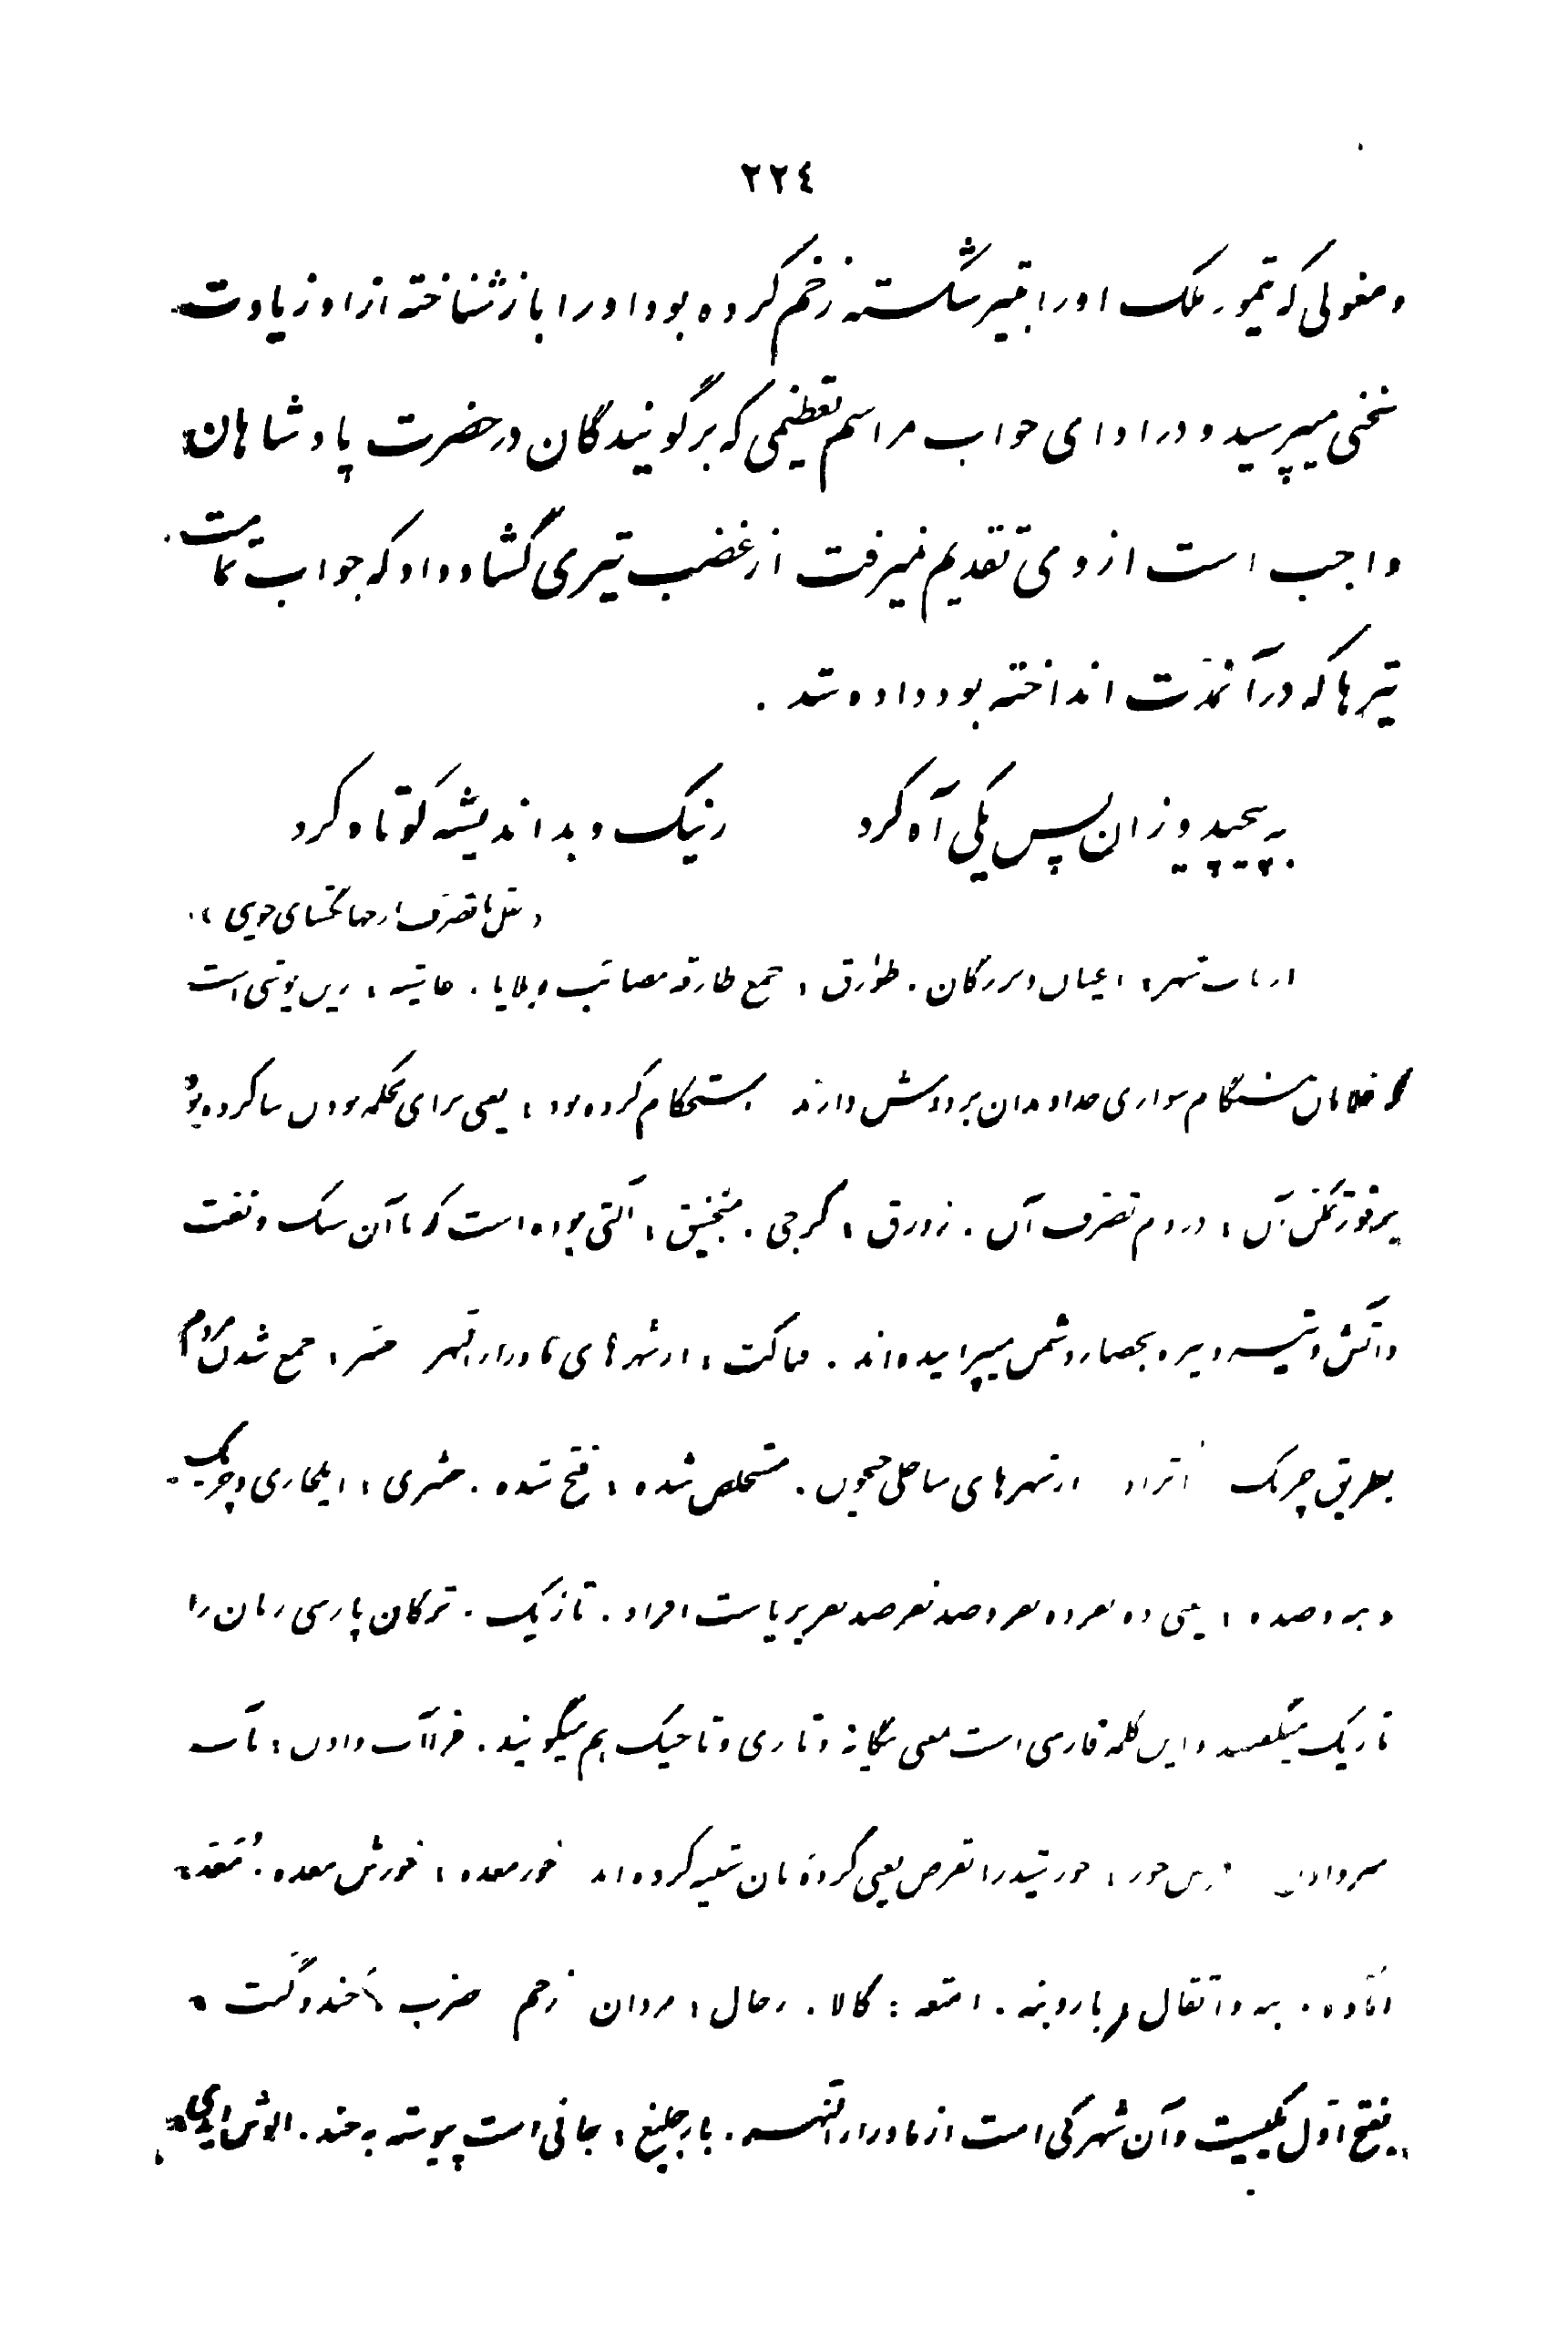 ۲۲٤
و مغولی که تیمور ملک او را بتیر شکسته زخم کرده بود او را باز شناخته از او زیادت
سخنی میپرسید و در ادای جواب مراسم تعظیمی که بر گویندگان در حضرت پادشاهان
واجب است از وی تقدیم نمیرفت از غضب تیری گشاد داد که جواب تمامت
تیرها که در آنمدت انداخته بود داده شد .
به پیچید و زان پس یکی آه کرد ز نیک و بد اندیشه کوتاه کرد
« نقل با تصرف از جهانگشای جوینی »
ارباب شهر : اعیان و بزرگان . طوارق : جمع طارقه مصائب و بلایا . غاشیه : زین پوشی است
که غلامان هنگام سواری خداوندان بر دوش دارند باستحکام کرده بود : یعنی برای محکم بودن بنا کرده بود
بر فور تمکن آن : در دم تصرف آن . زورق : کرجی . منجنیق : آلتی بوده است که با آن سنگ و نفت
و آتش و تیر و غیره بحصار دشمن میپرانیده‌اند . فناکت : از شهرهای ماوراءالنهر حشر : جمع شدن مردم
بطریق چریک اترار از شهرهای ساحلی جیحون . مستخلص شده : فتح شده . حشری : ایلجاری و چریک .
دهه و صده : یعنی ده نفر ده نفر و صد نفر صد نفر بریاست افراد . تازیک . ترکان پارسی زبان را
تازیک میگفتند و این کلمه فارسی است بمعنی بیگانه و تازی و تاجیک هم میگویند . غراآب دادن : بآب
سپردن قرص خور : خورشید را بقرص یعنی گرده نان تشبیه کرده‌اند خور معده : خورش معده . معد :
آماده . بنه و اثقال و بار و بنه . امتعه : کالا . رجال : مردان زخم ضرب خند و کت :
بفتح اول یکیست و آن شهرکی است از ماوراءالنهر . بارجلیغ : جائی است پیوسته به خند . الوش ایدی